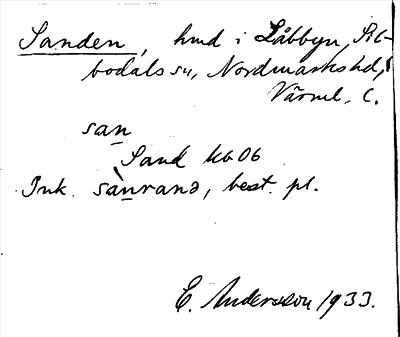 Sanden, hmd i Låbbyn, Sil-
bodals sn, Nordmarks hd,
Värml. l.
san
Sand kb 06
Ink. sànranə, best. pl.
E. Andersson 1933.